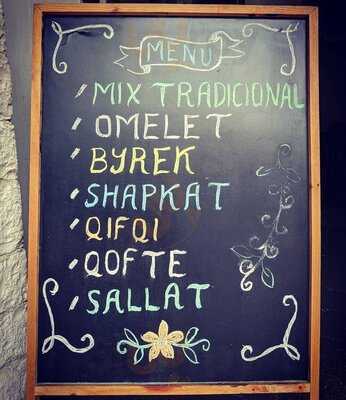 MENU
MIX TRADICIONAL
OMELET
BYREK
SHAPKAT
QIFQI
QOFTE
SALLAT